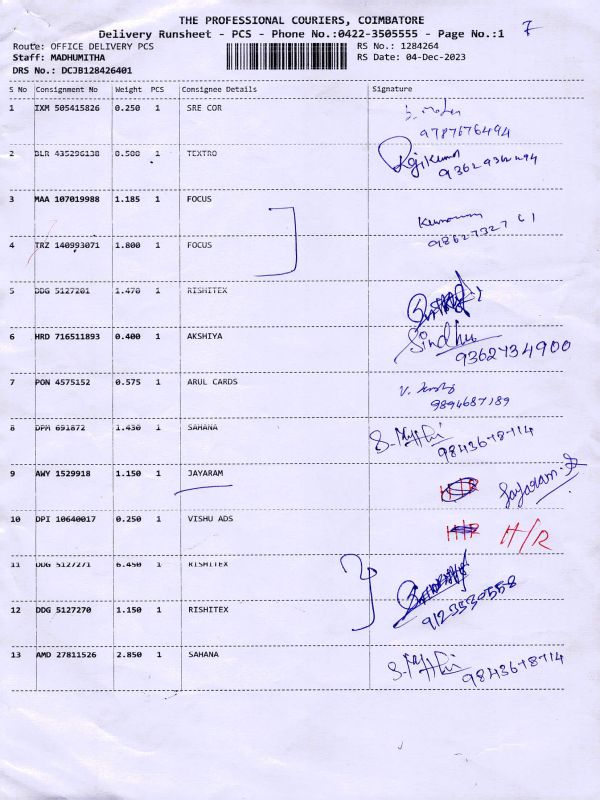 THE PROFESSIONAL COURIERS, COIMBATORE
Delivery Runsheet - PCS - Phone No.:0422-3505555 - Page No.:1 7
Route: OFFICE DELIVERY PCS RS No.: 1284264
Staff: MADHUMITHA RS Date: 04-Dec-2023
DRS No.: DCJB128426401
S No Consignment No Weight PCS Consignee Details Signature
1 IXM 505415826 0.250 1 SRE COR
9787676494
2 BLR 435296138 0.500 1 TEXTRO Rajkumar
3 MAA 107019988 1.185 1 FOCUS
4 TRZ 140993071 1.800 1 FOCUS
5 DDG 5127201 1.470 1 RISHITEX
6 HRD 716511893 0.400 1 AKSHIYA Sindhu
9362734900
7 PON 4575152 0.575 1 ARUL CARDS
9894687189
8 DPM 691872 1.430 1 SAHANA
9843618114
9 AWY 1529918 1.150 1 JAYARAM H/R Jayaram
10 DPI 10640017 0.250 1 VISHU ADS H/R H/R
11 DDG 5127271 6.450 1 RISHITEX
12 DDG 5127270 1.150 1 RISHITEX 9123330558
13 AMD 27811526 2.850 1 SAHANA
9843618114